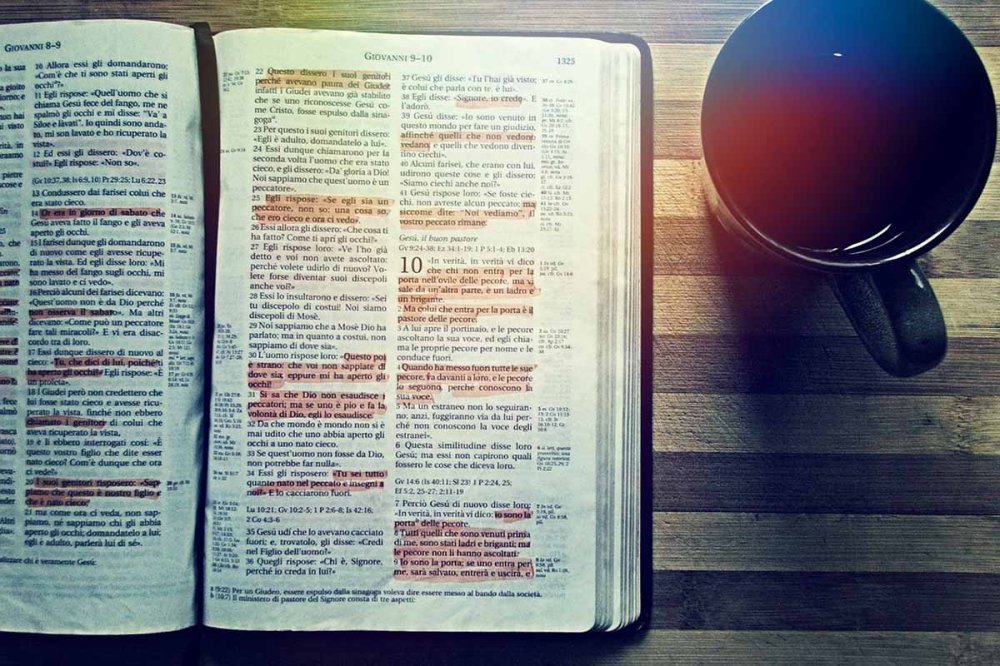 GIOVANNI 8–9
10 Allora essi gli domandarono:
«Com'è che ti sono stati aperti gli
occhi?»
11 Egli rispose: «Quell'uomo che si
chiama Gesù fece del fango, me ne
spalmò gli occhi e mi disse: "Va' a
Siloe e làvati". Io quindi sono anda-
to, mi son lavato e ho ricuperato la
vista».
12 Ed essi gli dissero: «Dov'è co-
stui?» Egli rispose: «Non so».
(Gv 10:37, 38; Is 6:9, 10) Pr 29:25; Lu 6:22, 23
13 Condussero dai farisei colui che
era stato cieco.
14 Or era in giorno di sabato che
Gesù aveva fatto il fango e gli aveva
aperto gli occhi.
15 I farisei dunque gli domandarono
di nuovo come egli avesse ricupe-
rato la vista. Ed egli disse loro: «Mi
ha messo del fango sugli occhi, mi
sono lavato e ci vedo».
16 Perciò alcuni dei farisei dicevano:
«Quest'uomo non è da Dio perché
non osserva il sabato». Ma altri
dicevano: «Come può un peccatore
fare tali miracoli?» E vi era disac-
cordo tra di loro.
17 Essi dunque dissero di nuovo al
cieco: «Tu, che dici di lui, poiché ti
ha aperto gli occhi?» Egli rispose: «È
un profeta».
18 I Giudei però non credettero che
lui fosse stato cieco e avesse ricu-
perato la vista, finché non ebbero
chiamato i genitori di colui che
aveva ricuperato la vista,
19 e li ebbero interrogati così: «È
questo vostro figlio che dite esser
nato cieco? Com'è dunque che ora
ci vede?»
20 I suoi genitori risposero: «Sap-
piamo che questo è nostro figlio e
che è nato cieco;
21 ma come ora ci veda, non sap-
piamo, né sappiamo chi gli abbia
aperto gli occhi; domandatelo a lui;
egli è adulto, parlerà lui di sé».
GIOVANNI 9–10
1325
22 Questo dissero i suoi genitori
perché avevano paura dei Giudei;
infatti i Giudei avevano già stabilito
che se uno riconoscesse Gesù co-
me Cristo, fosse espulso dalla sina-
goga.
23 Per questo i suoi genitori dissero:
«Egli è adulto, domandatelo a lui».
24 Essi dunque chiamarono per la
seconda volta l'uomo che era stato
cieco, e gli dissero: «Da' gloria a Dio!
Noi sappiamo che quest'uomo è un
peccatore».
25 Egli rispose: «Se egli sia un
peccatore, non so; una cosa so,
che ero cieco e ora ci vedo».
26 Essi allora gli dissero: «Che cosa ti
ha fatto? Come ti aprì gli occhi?»
27 Egli rispose loro: «Ve l'ho già
detto e voi non avete ascoltato;
perché volete udirlo di nuovo? Vo-
lete forse diventar suoi discepoli
anche voi?»
28 Essi lo insultarono e dissero: «Sei
tu discepolo di costui! Noi siamo
discepoli di Mosè.
29 Noi sappiamo che a Mosè Dio ha
parlato; ma in quanto a costui, non
sappiamo di dove sia».
30 L'uomo rispose loro: «Questo poi
è strano: che voi non sappiate di
dove sia; eppure mi ha aperto gli
occhi!
31 Si sa che Dio non esaudisce i
peccatori; ma se uno è pio e fa la
volontà di Dio, egli lo esaudisce.
32 Da che mondo è mondo non si è
mai udito che uno abbia aperto gli
occhi a uno nato cieco.
33 Se quest'uomo non fosse da Dio,
non potrebbe far nulla».
34 Essi gli risposero: «Tu sei tutto
quanto nato nel peccato e insegni a
noi?» E lo cacciarono fuori.
Lu 10:21; Gv 10:2-5; 1 P 2:6-8; Is 42:16;
2 Co 4:3-6
35 Gesù udì che lo avevano cacciato
fuori; e, trovatolo, gli disse: «Credi
nel Figlio dell'uomo?»
36 Quegli rispose: «Chi è, Signore,
perché io creda in lui?»
37 Gesù gli disse: «Tu l'hai già visto;
è colui che parla con te, è lui».
38 Egli disse: «Signore, io credo». E
l'adorò.
39 Gesù disse: «Io sono venuto in
questo mondo per fare un giudizio,
affinché quelli che non vedono
vedano, e quelli che vedono diven-
tino ciechi».
40 Alcuni farisei, che erano con lui,
udirono queste cose e gli dissero:
«Siamo ciechi anche noi?»
41 Gesù rispose loro: «Se foste cie-
chi, non avreste alcun peccato; ma
siccome dite: "Noi vediamo", il
vostro peccato rimane.
Gesù, il buon pastore
Gv 9:24-38; Ez 34:1-19; 1 P 5:1-4; Eb 13:20
10 «In verità, in verità vi dico
che chi non entra per la
porta nell'ovile delle pecore, ma vi
sale da un'altra parte, è un ladro e
un brigante.
2 Ma colui che entra per la porta è il
pastore delle pecore.
3 A lui apre il portinaio, e le pecore
ascoltano la sua voce, ed egli chia-
ma le proprie pecore per nome e le
conduce fuori.
4 Quando ha messo fuori tutte le sue
pecore, va davanti a loro, e le pecore
lo seguono, perché conoscono la
sua voce.
5 Ma un estraneo non lo seguiran-
no; anzi, fuggiranno via da lui per-
ché non conoscono la voce degli
estranei».
6 Questa similitudine disse loro
Gesù; ma essi non capirono quali
fossero le cose che diceva loro.
Gv 14:6 (Is 40:11; Sl 23) 1 P 2:24, 25;
Ef 5:2, 25-27; 2:11-19
7 Perciò Gesù di nuovo disse loro:
«In verità, in verità vi dico: io sono la
porta delle pecore.
8 Tutti quelli che sono venuti prima
di me, sono stati ladri e briganti; ma
le pecore non li hanno ascoltati.
9 Io sono la porta; se uno entra per
me, sarà salvato, entrerà e uscirà, e
a (9:22) Per un Giudeo, essere espulso dalla sinagoga voleva dire essere messo al bando dalla società.
b (10:7) Il ministero di pastore del Signore consta di tre aspetti: